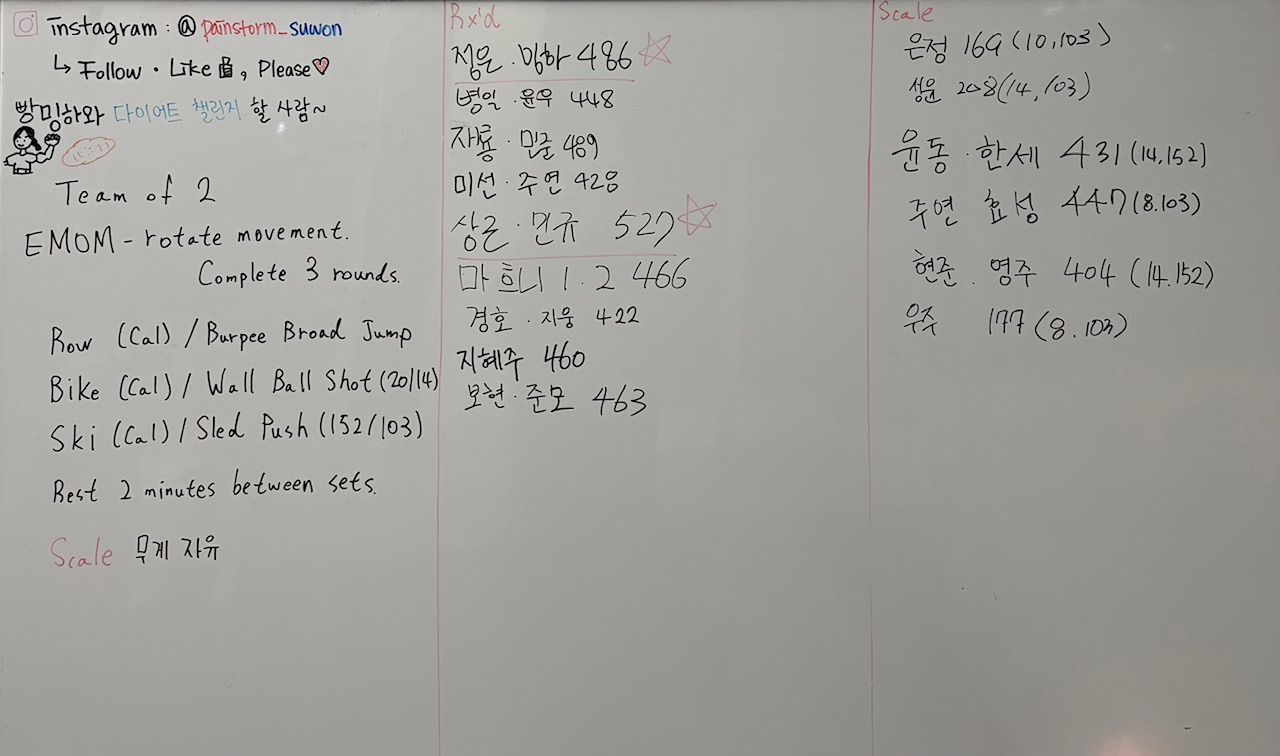 instagram : @ painstorm_suwon
↳ Follow · Like 👍, Please♡
빵밍하와 다이어트 챌린지 할 사람~
Team of 2
EMOM - rotate movement.
Complete 3 rounds.
Row (Cal) / Burpee Broad Jump
Bike (Cal) / Wall Ball Shot (20/14)
Ski (Cal) / Sled Push (152/103)
Rest 2 minutes between sets.
Scale 무게 자유
Rx'd
정은 · 밍하 486 ☆
병일 · 윤우 448
재룡 · 민준 489
미선 · 주연 428
상은 · 민규 527 ☆
마흐니 1 . 2 466
경호 · 지웅 422
지혜주 460
보현 · 준모 463
Scale
은정 169 (10,103)
성윤 208 (14,103)
윤동 · 한세 431 (14,152)
주연 효성 447 (8.103)
현준 . 영주 404 (14.152)
우주 177 (8.103)